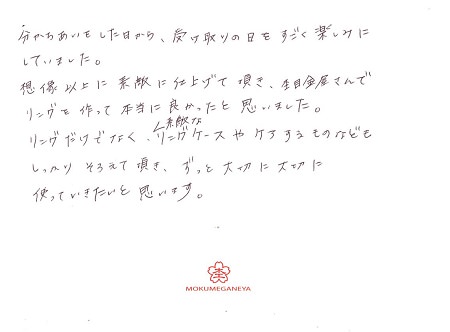 分かちあいをした日から、受け取りの日をすごく楽しみに
していました。
想像以上に素敵に仕上げて頂き、杢目金屋さんで
リングを作って本当に良かったと思いました。
リングだけでなく、素敵なリングケースやケアするものなども
しっかりそろえて頂き、ずっと大切に大切に
使っていきたいと思います。
MOKUMEGANEYA